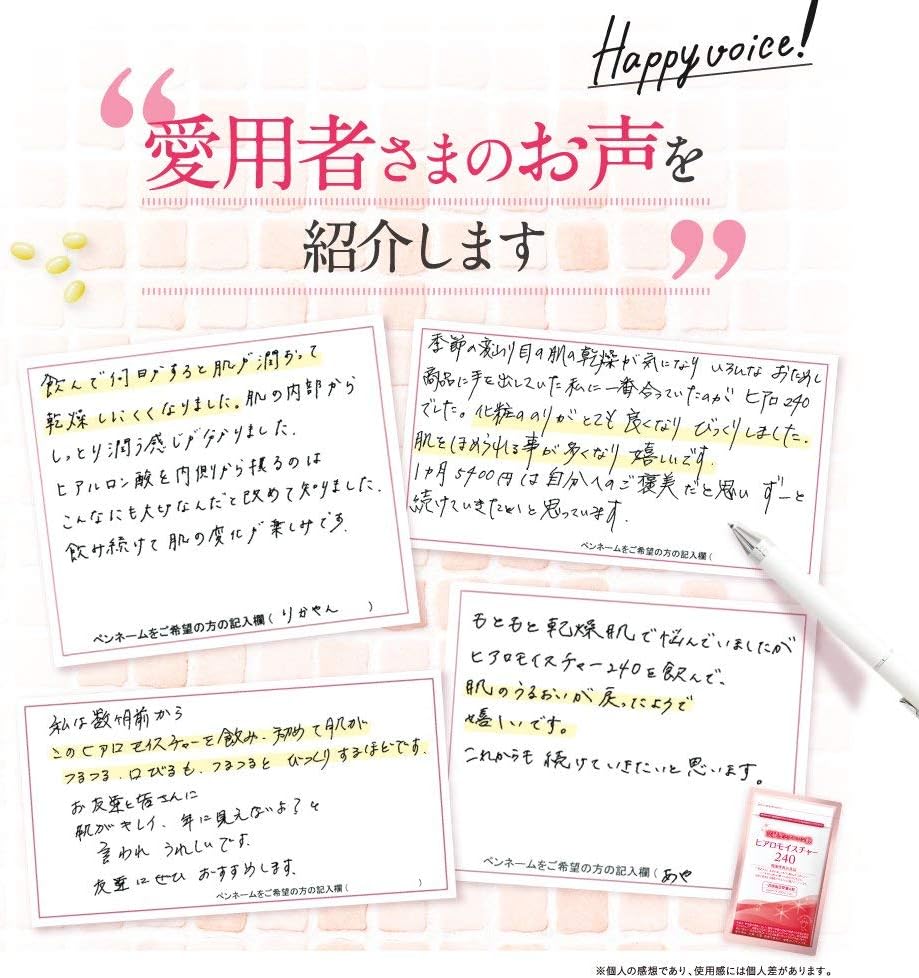 Happy voice!
“愛用者さまのお声を
紹介します”
飲んで何日かすると肌が潤おって
乾燥しにくくなりました。肌の内部から
しっとり潤う感じが分かりました.
ヒアルロン酸を内側から摂るのは
こんなにも大切なんだと改めて知りました.
飲み続けて肌の変化が楽しみです.
ペンネームをご希望の方の記入欄( りかやん )
季節の変り目の肌の乾燥が気になり いろんな おためし
商品に手を出していた私に一番合っていたのが ヒアロ240
でした。化粧ののりがとても 良くなり びっくりしました.
肌をほめられる事が多くなり 嬉しいです.
1ヵ月5400円は自分へのご褒美だと思い ずーと
続けていきたいと思っています.
ペンネームをご希望の方の記入欄(
私は数ヶ月前から
このヒアロモイスチャーを飲み、初めて肌が
つるつる、口びるも、つるつると びっくりするほどです.
お友達と皆さんに
肌がキレイ、年に見えないよ?と
言われ うれしいです.
友達にぜひ おすすめします.
ペンネームをご希望の方の記入欄( )
もともと乾燥肌で悩んでいましたが
ヒアロモイスチャー240を飲んで、
肌のうるおいが戻ったようで
嬉しいです。
これからも続けていきたいと思います。
ペンネームをご希望の方の記入欄( あや
ヒアロモイスチャー
240
※個人の感想であり、使用感には個人差があります。